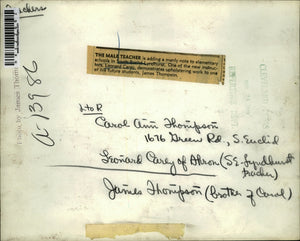 THE MALE TEACHER is adding a manly note to elementary
schools in South Euclid-Lyndhurst. One of the new instruc-
tors, Leonard Carey, demonstrates satisfying work to one
of his future students, James Thompson.
Photo by James Thom
a-13986
L to R
Carol Ann Thompson
1676 Green Rd., S. Euclid
Leonard Carey of Akron (S.E. Lyndhurst
teacher)
James Thompson (brother of Carol)